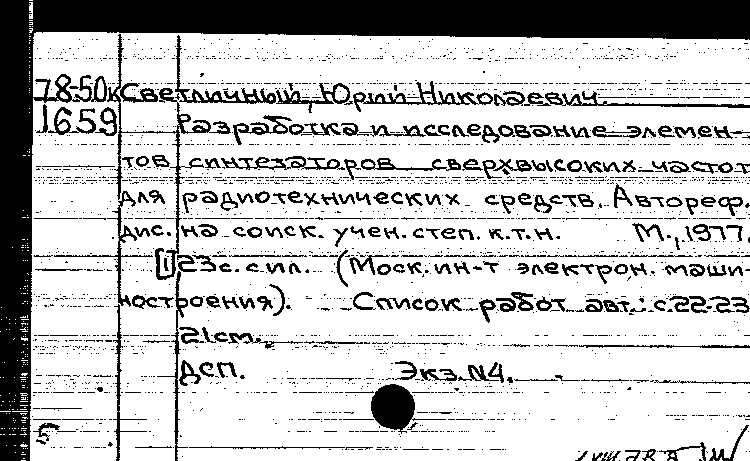 78-50к Светличный, Юрий Николаевич.
1659 Разработка и исследование элемен-
тов синтезаторов сверхвысоких частот
для радиотехнических средств. Автореф.
дис. на соиск. учен. степ. к.т.н. М., 1977.
[1] 23с. с ил. (Моск. ин-т электрон. маши-
ностроения). Список работ авт.: с.22-23
21см.
ДСП. Экз. N4.